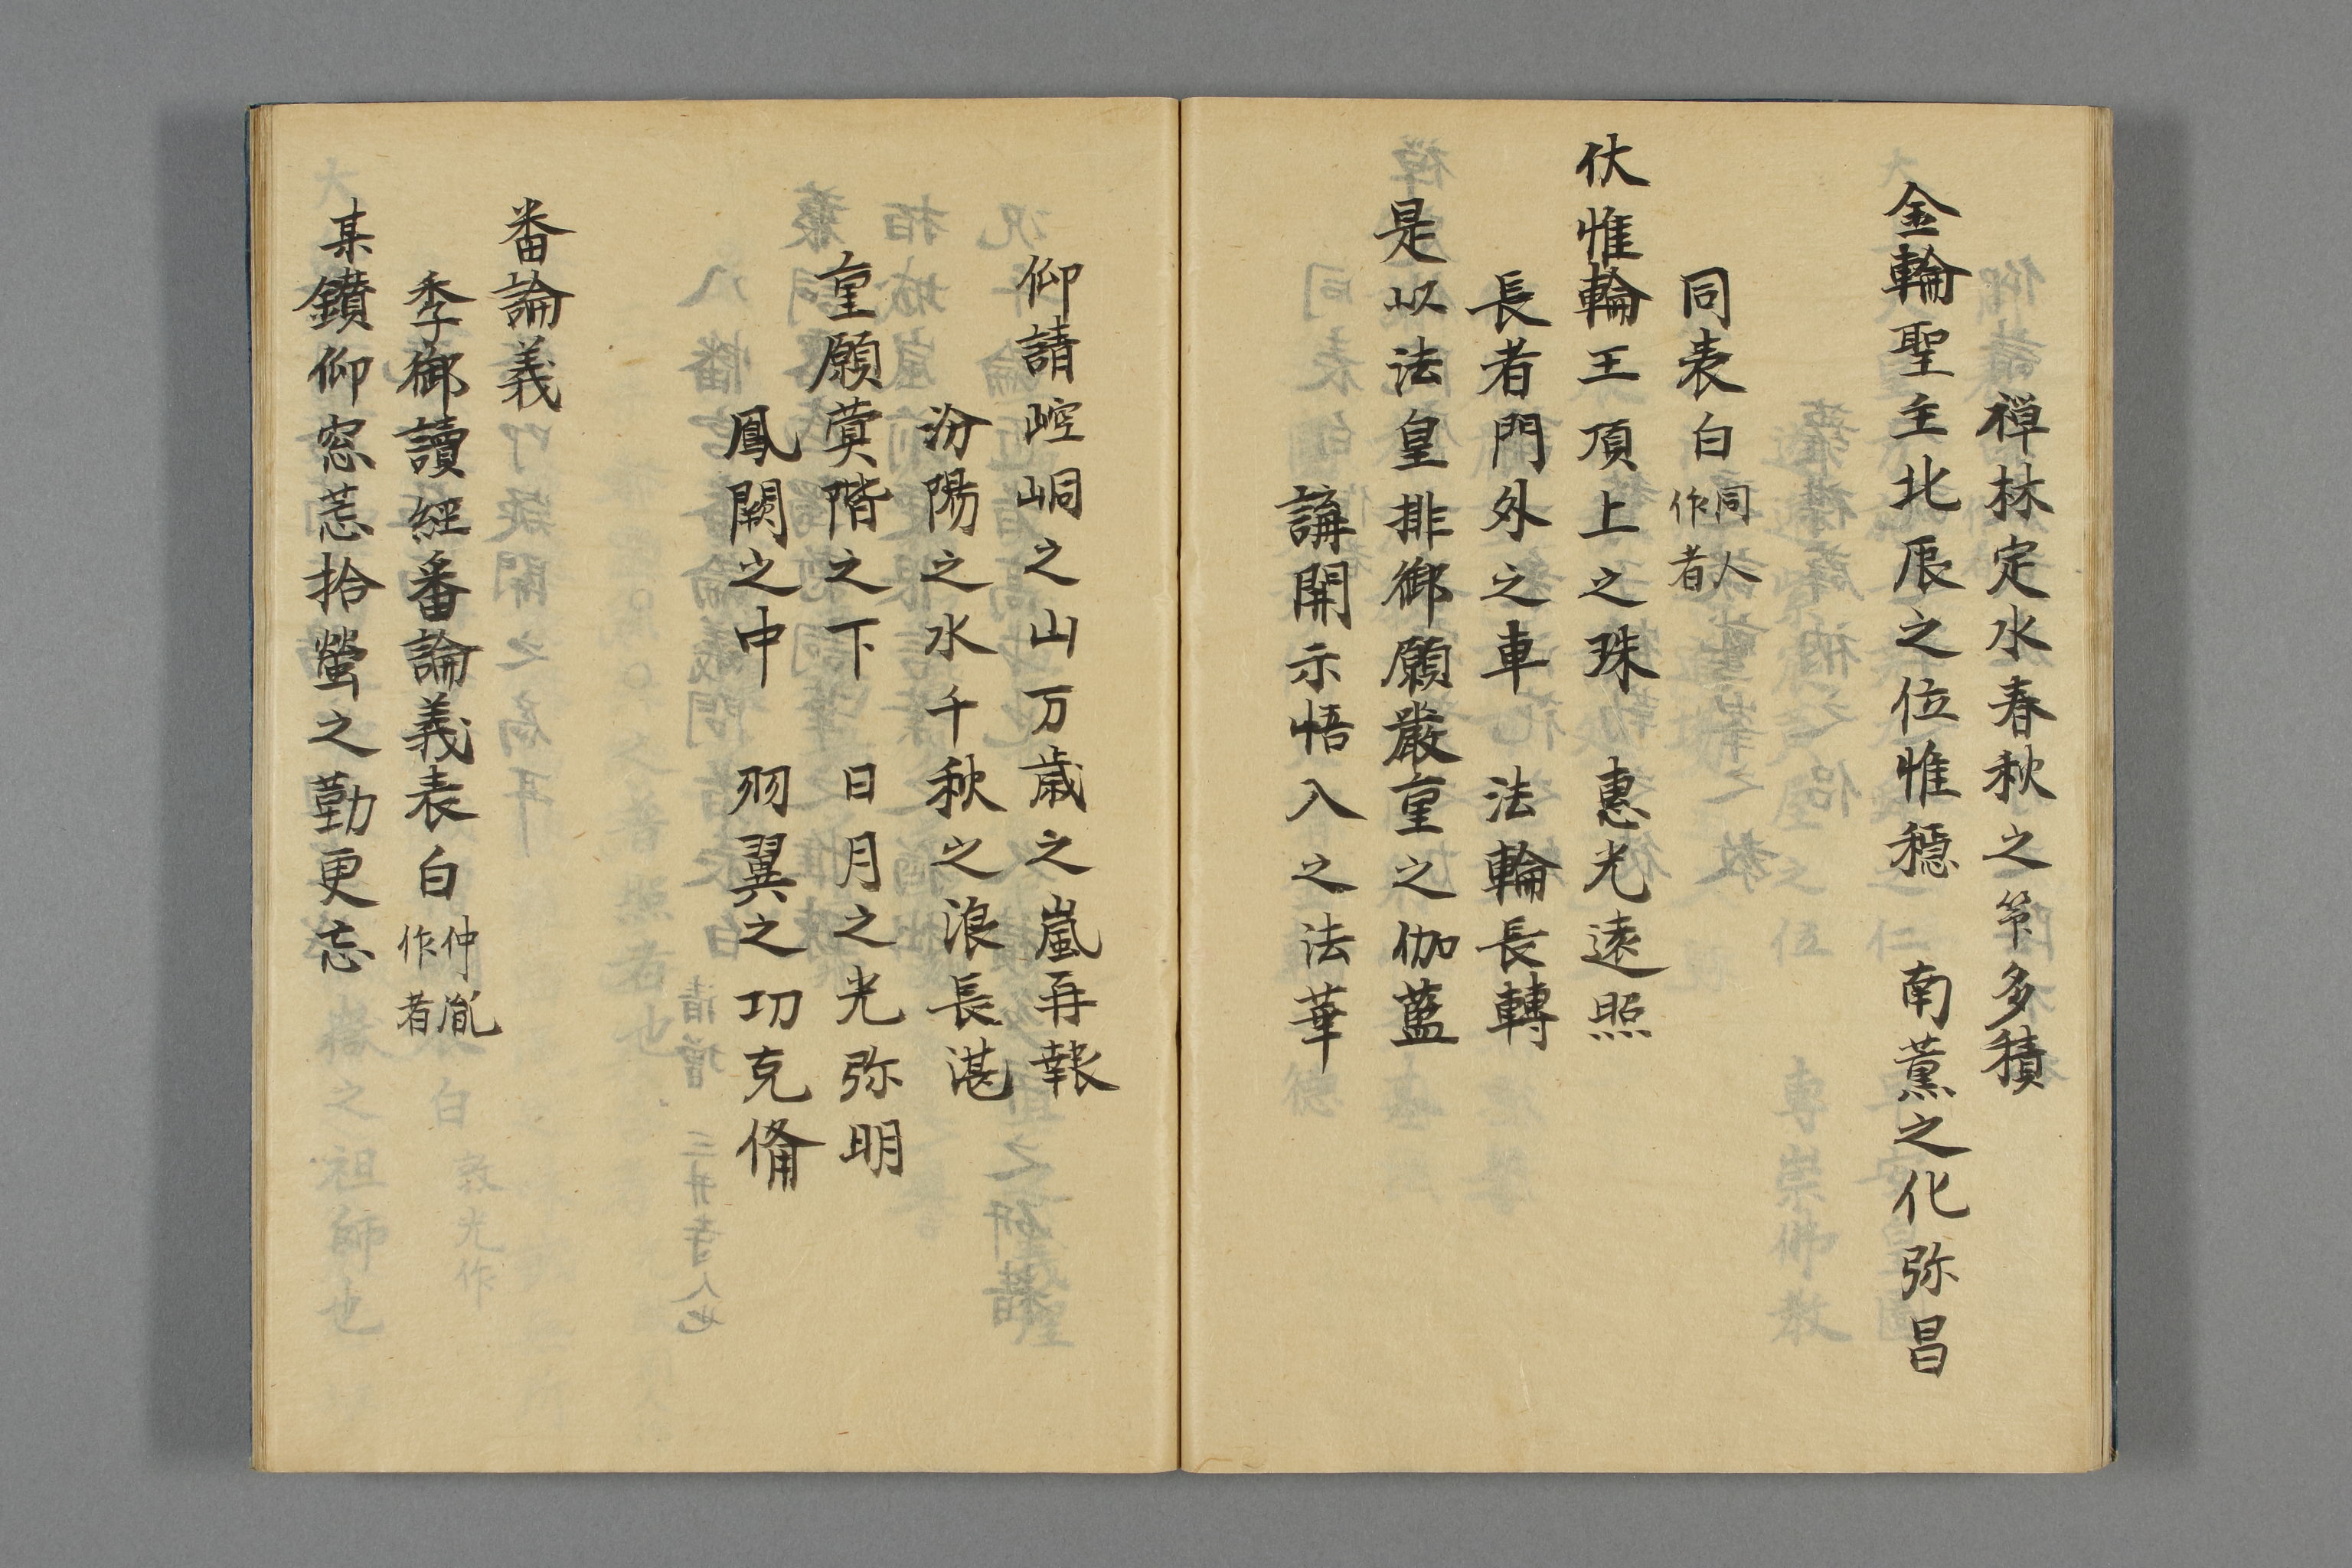 禅林定水春秋之笇多積
金輪聖主北辰之位惟穏　南薫之化弥昌
同表白 同人作者
伏惟輪王頂上之珠　惠光遠照
長者門外之車　法輪長轉
是以法皇排御願嚴重之伽藍
講開示悟入之法華
仰請崆峒之山万歳之嵐再報
汾陽之水千秋之浪長湛
重願蓂階之下　日月之光弥明
鳳闕之中　羽翼之功克俻
番論義
季御讀經番論義表白 仲胤作者
某鑚仰窓荒拾螢之勤更忘